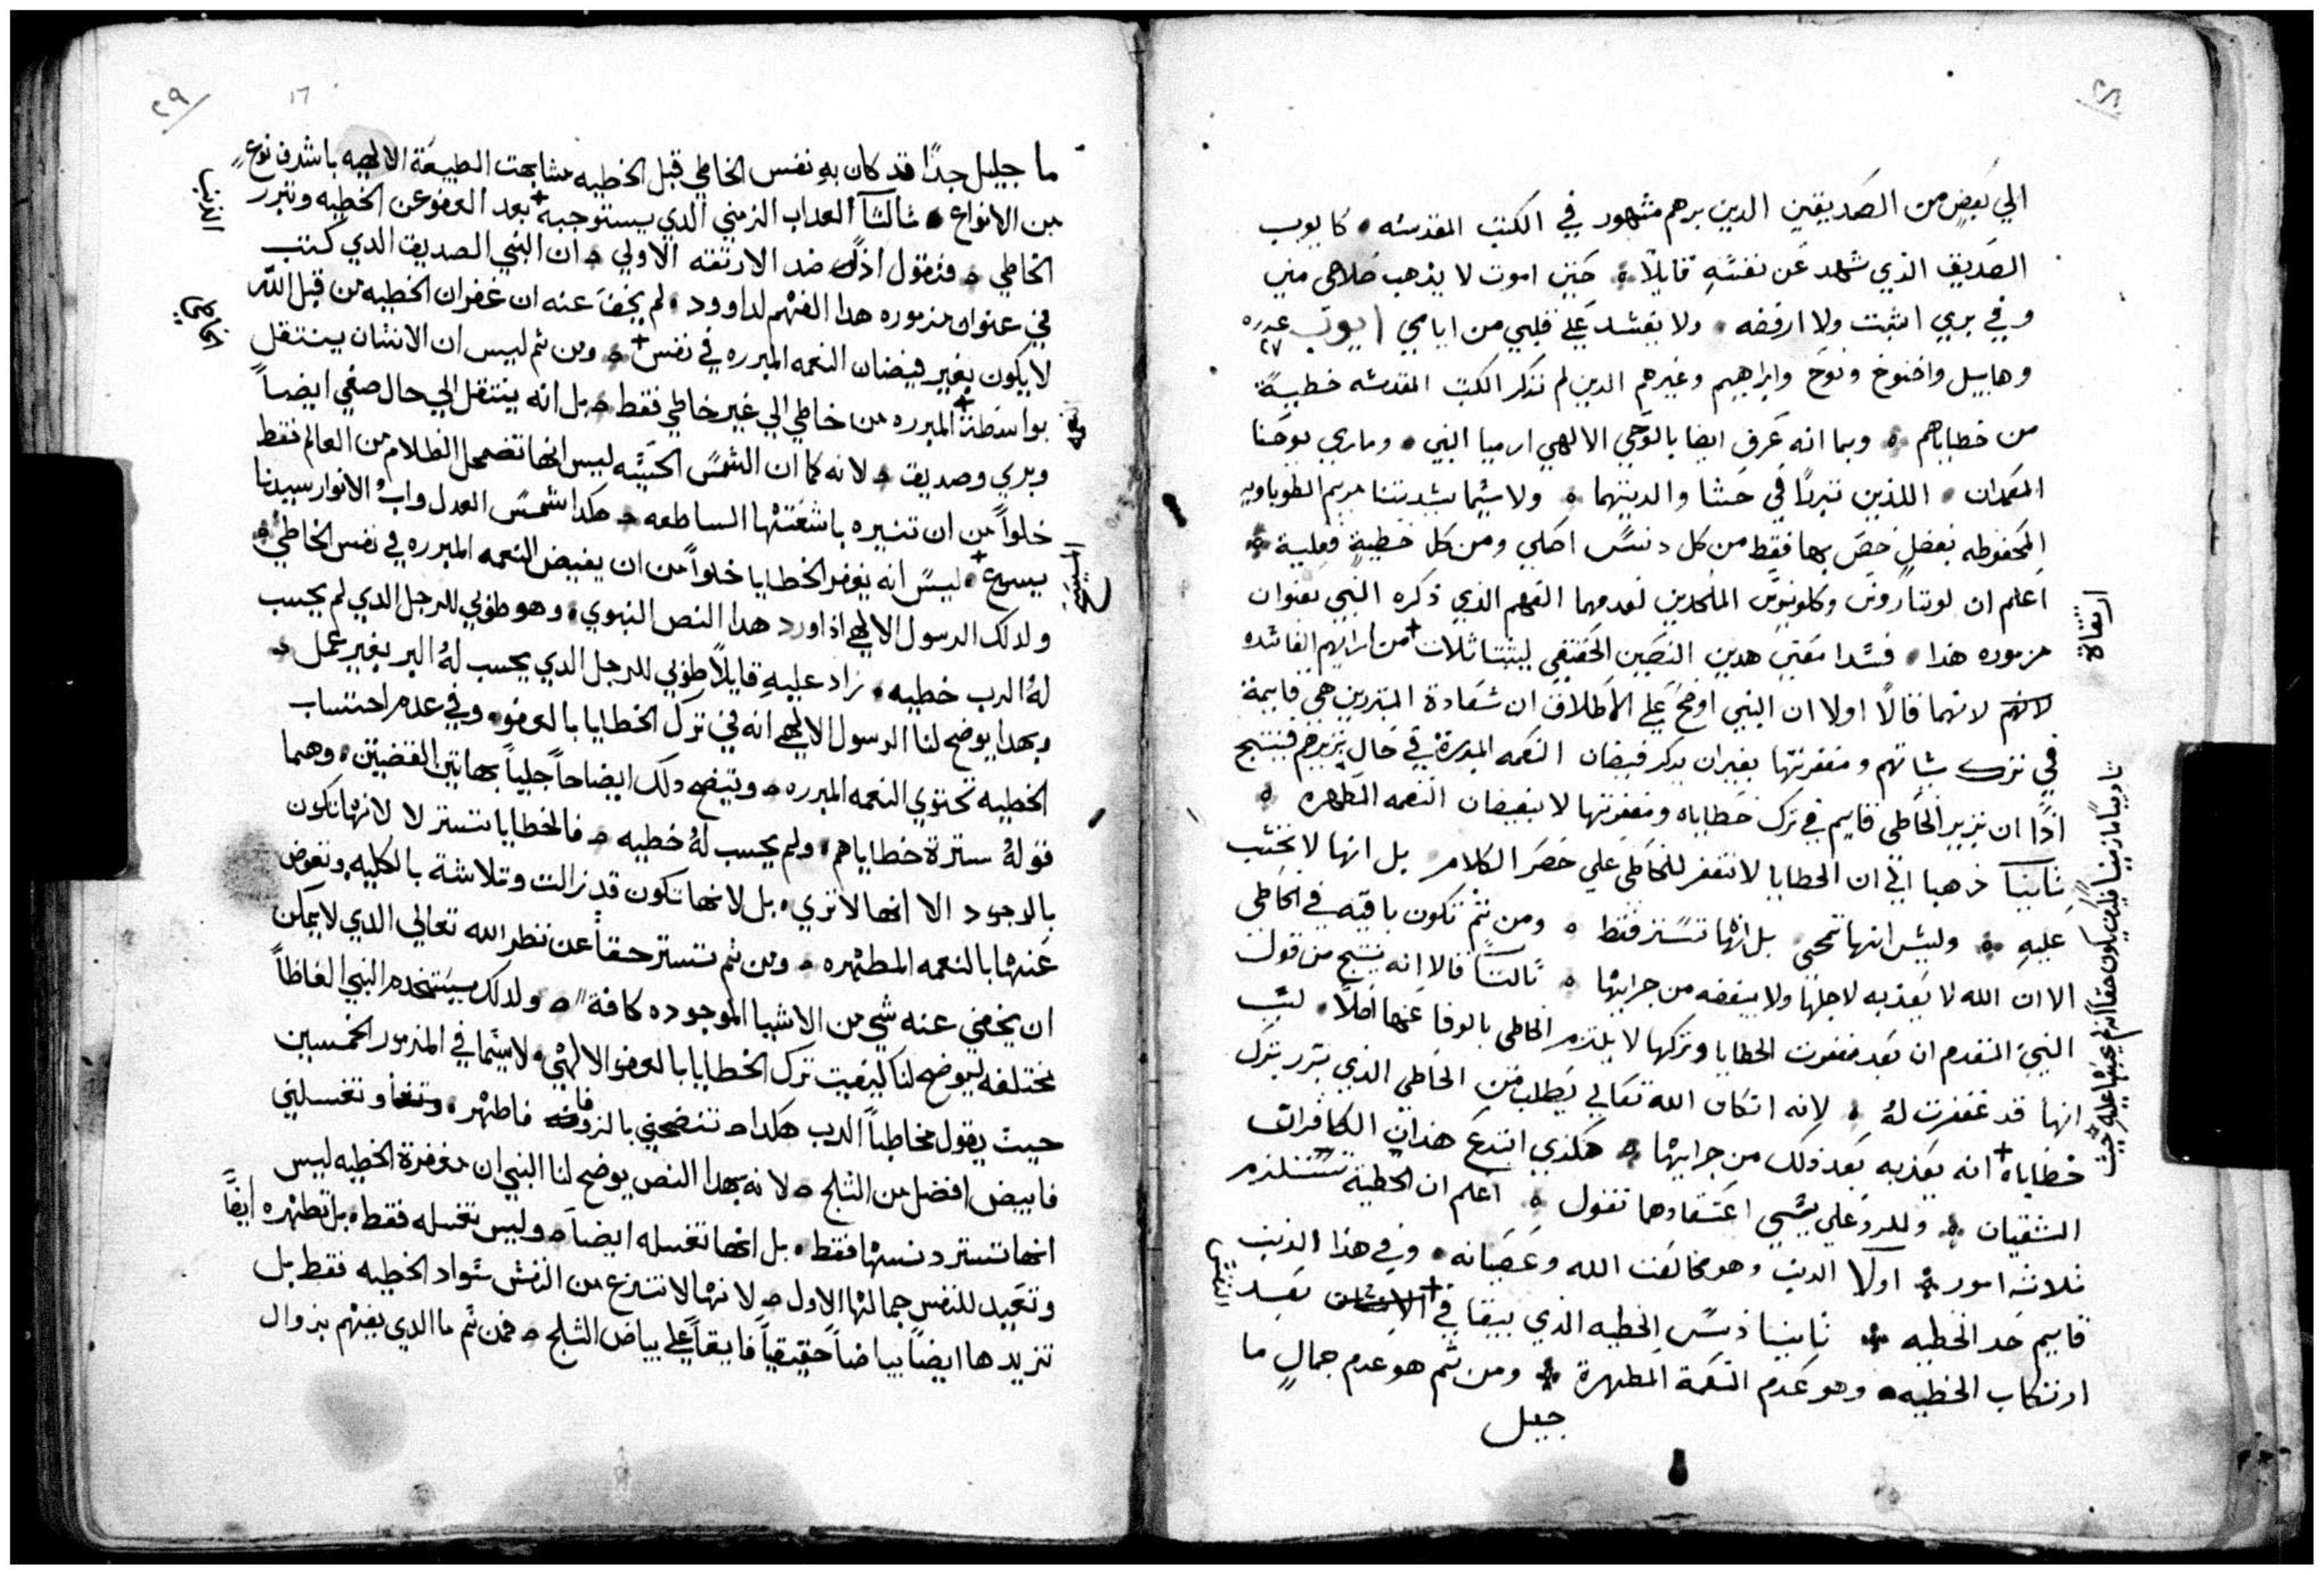 ٢٨
الي بعضٍ من الصديقين الدين برهم مشهور في الكتب المقدسه • كايوب
الصديق الذي شهد عن نفسهِ قايلاً • حتي اموت لا يذهب صلاحي مني
وفي بري اثبت ولا ارفضه • ولا يفسد علي قلبي من ايامي ايوب عدده ٢٧
وهابيل واخنوخ ونوح وابراهيم وغيرهم الدين لم تذكر الكتب المقدسه خطيةً
من خطاياهم • وبما انه عرف ايضا بالوحي الالهي ارميا النبي • وماري يوحنا
المعمدان • اللذين تبررا في حشا والدتيهما • ولاسيما سيدتنا مريم الطوباويه
المحفوظه بفضلٍ خص بها فقط من كل دنس اصلي ومن كل خطيةٍ فعلية •
اعلم ان لوتاروس وكلوينوس الملحدين لعدمهما الفهم الذي ذكره النبي بعنوان
مزموره هذا • فسدا معني هدين النصين الحقيقي ليثبتا ثلاث + من ارايهم الفاسده
لانهم لانهما قالا اولا ان النبي اوضح علي الاطلاق ان سعادة المتبررين هي قايمة
في ترك سياتهم ومغفرتها بغيران يدكر فيضان النعمه المبررة في حال تبريرهم فينتج
اذًا ان تبرير الخاطي قايم في ترك خطاياه ومغفرتها لا بفيضان النعمه المطهره •
ثانيًا ذهبا الي ان الخطايا لا تغفر للخاطي علي حصر الكلام بل انها لا تحتسب
عليهِ • وليس انها تمحي بل انها تستر فقط • ومن ثم تكون باقيه في الخاطي
الا ان الله لا يعذبه لاجلها ولا يبغضه من جرايها • ثالثًا قالا انه ينتج من قول
النبي المتقدم ان بعد مغفرت الخطايا وتركها لا يلتزم الخاطي بالوفا عنها اصلاً • لسبب
انها قد غفرت لهُ • لانه ان كان الله تعالي يطلب من الخاطي الذي تبرر بترك
خطاياه + انه يعذبه بعد ذلك من جرايها • هكذي ابتدع هذان الكافران
الشقيان • وللرد علي سي اعتقادهما نقول • اعلم ان الخطية تستلزم
ثلاثه امور • اولاً الديب وهو مخالفت الله وعصيانه • وفي هذا الذنب
قايم حد الخطيه • ثانيا دنس الخطيه الذي يبقا في + بعد
ارتكاب الخطيه • وهو عدم النعمة المطهرة • ومن ثم هو عدم جمالٍ ما
جليل
ارتقاة
النفس
٢٩
١٦
ما جليل جدًا قد كان بهِ نفس الخاطي قبل الخطيه مشابهت الطبيعة الالهيه باشرف نوعٍ
من الانواع • ثالثًا العداب الزمني الدي يستوجبه + بعد العفو عن الخطيه وتبرر
الخاطي • فنقول اذًا ضد الارتقه الاولي • ان النبي الصديق الدي كتب
في عنوان مزموره هدا الفهم لداوود • لم يخف عنه ان غفران الخطيه من قبل الله
لا يكون بغير فيضان النعمه المبرره في نفس + • ومن ثم ليس ان الانسان ينتقل
بواسطة + المبرره من خاطي الي غير خاطي فقط • بل انه ينتقل الي حال صفي ايضاً
وبري وصديق • لانه كما ان الشمس الحسيه ليس انها تضمحل الظلام من العالم فقط
خلواً من ان تنيره باشعتها الساطعه • هكدا شمس العدل واب الانوار سيدنا
يسوع + • ليس انه يغفر الخطايا خلواً من ان يفيض النعمه المبرره في نفس الخاطي •
ولدلك الرسول الالهي اذ اورد هدا النص النبوي • وهو طوبي للرجل الدي لم يحسب
لهُ الرب خطيه • زاد عليهِ قايلاً طوبي للرجل الدي يحسب لهُ البر بغير عمل •
وبهدا يوضح لنا الرسول الالهي انه في ترك الخطايا بالعفو • وفي عدم احتساب
الخطيه تحتوي النعمه المبرره • وتتضح دلك ايضاحاً جلياً بهاتين القضيتين • وهما
قولهُ سترة خطاياهم • ولم يحسب لهُ خطيه • فالخطايا تستر لا لانها تكون
بالوجود الا انها لا تري • بل لانها تكون قد زالت وتلاشة بالكليه وتعوض
عنها بالنعمه المطهره • ومن ثم تستر حقاً عن نظر الله تعالي الدي لا يمكن
ان يخفي عنه شي من الاشيا الموجوده كافةً • ولدلك يستخدم النبي الفاظاً
مختلفه ليوضح لنا كيفيت ترك الخطايا بالعفو الالهي • لاسيما في المزمور الخمسين
حيث يقول مخاطباً الرب هكدا • تنضحني بالزوفا فاطهر • وتغسلني
فابيض افضل من الثلج • لانه بهدا النص يوضح لنا النبي ان مغفرة الخطيه ليس
انها تستر دنسها فقط • بل انها تغسله ايضاً • وليس تغسله فقط • بل تطهره ايضًا
وتعيد للنفس جمالها الاول • لانها لا تنزع من النفس سواد الخطيه فقط بل
تزيدها ايضاً بياضاً حقيقياً فايقاً علي بياض الثلج • فمن ثم ما الدي يفهم بزوال
الذنب
الخاطي
المسيح